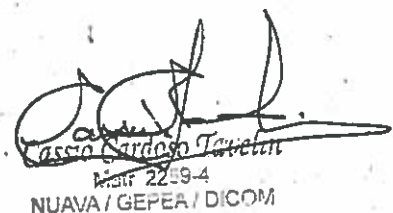 Cassio Cardoso Tavelin
Matr 2259-4
NUAVA / GEPEA / DICOM